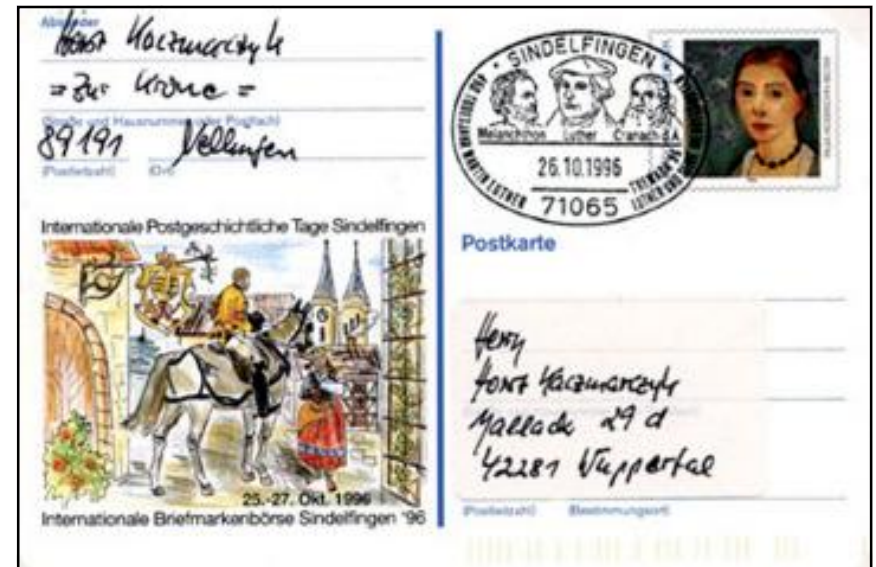 Absender
Horst Kaczmarczyk
= Zur Krone =
(Straße und Hausnummer oder Postfach)
89191 Nellingen
(Postleitzahl) (Ort)
Internationale Postgeschichtliche Tage Sindelfingen
25.-27. Okt. 1996
Internationale Briefmarkenbörse Sindelfingen '96
SINDELFINGEN
Melanchthon Luther Cranach d.Ä.
26.10.1996
MARTIN LUTHER
LUTHER UND
71065
Postkarte
Herrn
Horst Kaczmarczyk
29 d
42281 Wuppertal
(Postleitzahl) (Bestimmungsort)